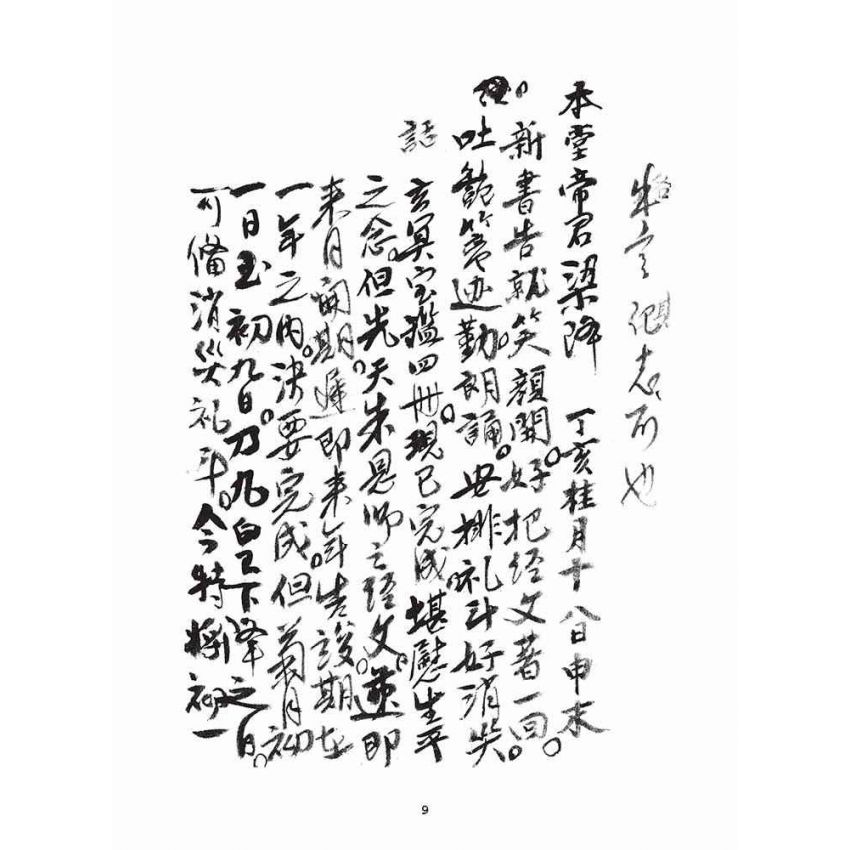 本堂帝君梁降 丁亥桂月十八日申末
新書告就笑顏開。好把經文著一回。
吐艷 迹勤朗誦。毋排礼斗好消災。
話
玄冥宝鑑四冊。現已完成。堪慰生平
之念。但先天朱恩師之經文。遲即
来月開期。遲即来年告竣。期在
一年之内。決要完成。但菊月初
一日至初九日。乃九皇下降之日。
可備消災礼斗。今特將初一
9